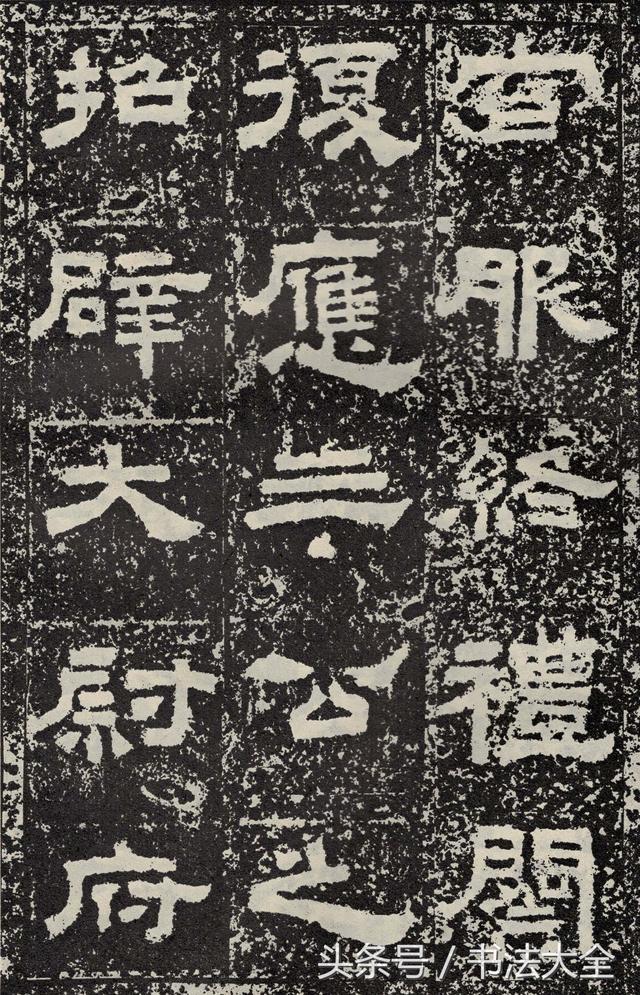 官服終禮闋
復應三公之
招辟大尉府
头条号 / 书法大全